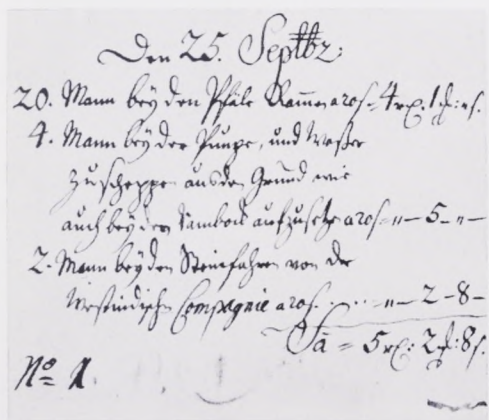 Den 25. Septbr:
20. Mann bey den Pfäle Rammen a 20 s = 4 rx. 1 f: s.
4. Mann bey der Pumpe, und Waßer
zu scheppen aus den Grund wie
auch bey den auf zu setzen a 20 s - „ - 5 - „ -
2. Mann bey den Steinfahren von der
Westindischen Compagnie a 20 s. . . . „ - 2 - 8 -
Sa = 5 rx: 2 f: 8 s.
No 1